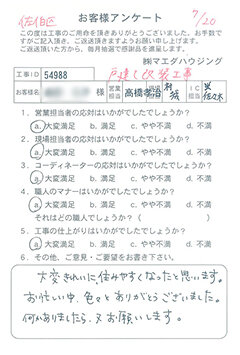 佐伯区
7/20
お客様アンケート
この度は工事のご用命を頂きありがとうございました。お手数ですがご記入頂き、ご返送頂きますようお願い申し上げます。
ご返送頂いた方から、毎月抽選で感謝品を進呈します。
㈱マエダハウジング
戸建て改装工事
工事ID 54988
様 営業担当 高橋 工事担当 IC担当 佐々木
1. 営業担当者の応対はいかがでしたでしょうか?
a. 大変満足 b. 満足 c. やや不満 d. 不満
2. 現場担当者の応対はいかがでしたでしょうか?
a. 大変満足 b. 満足 c. やや不満 d. 不満
3. コーディネーターの応対はいかがでしたでしょうか?
a. 大変満足 b. 満足 c. やや不満 d. 不満
4. 職人のマナーはいかがでしたでしょうか?
a. 大変満足 b. 満足 c. やや不満 d. 不満
それはどの職人でしょうか?( )
5. 工事の仕上がりはいかがでしたでしょうか?
a. 大変満足 b. 満足 c. やや不満 d. 不満
6. その他、ご意見・ご要望をお書き下さい。
大変きれいに、住みやすくなったと思います。
お忙しい中、色々とありがとうございました。
何かありましたら、又お願いします。